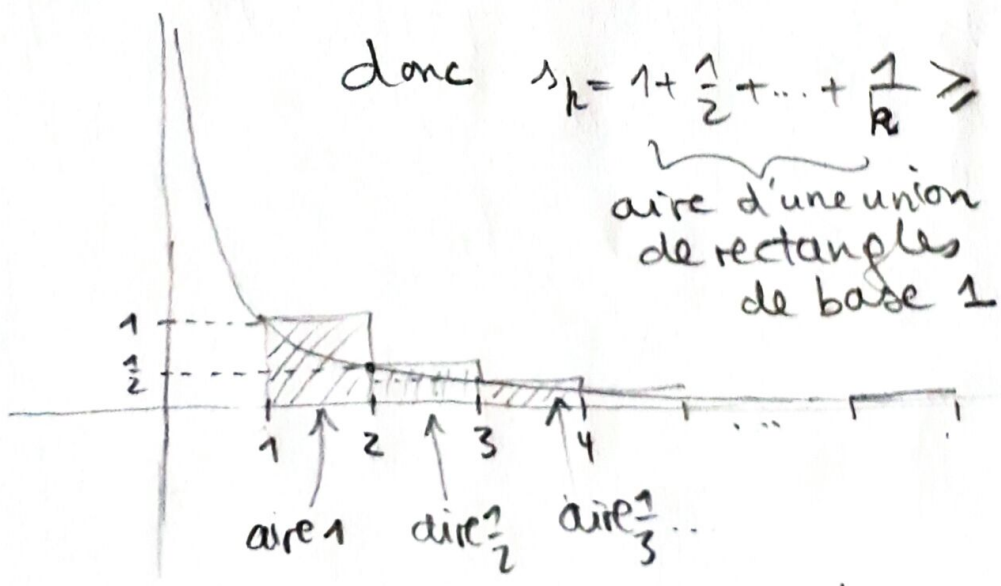 donc s_k = 1 + 1/2 + ... + 1/k ≥
aire d'une union
de rectangles
de base 1
1
1/2
1 2 3 4 ....
aire 1 aire 1/2 aire 1/3 ...